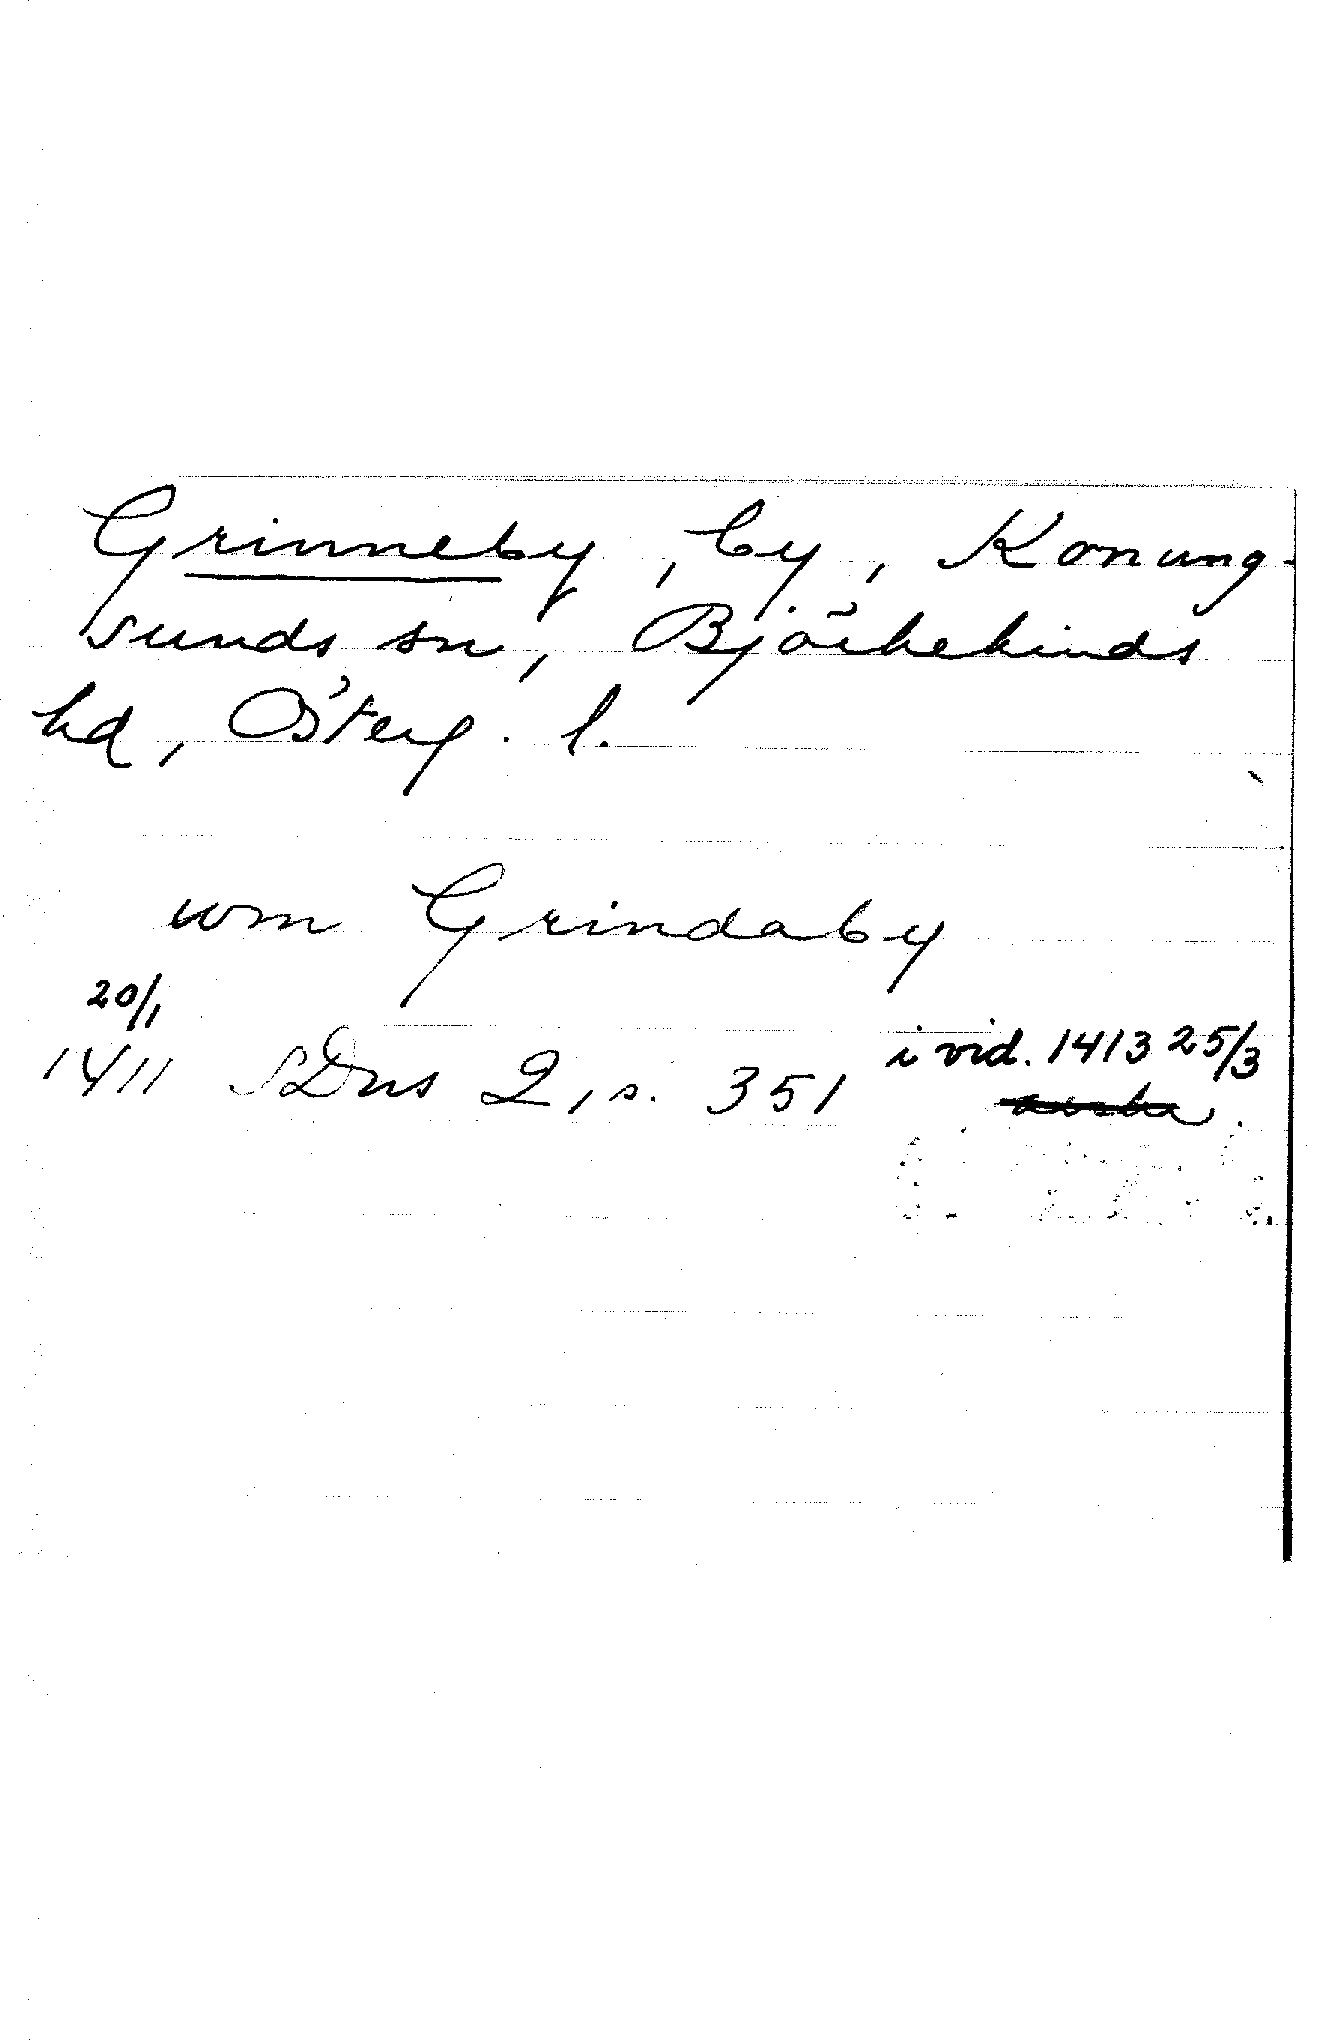 Grinneby, by, Konung-
sunds sn, Björkekinds
hd, Österg. l.
wm Grindaby
20/1
1411 SDns 2, s. 351 i vid. 1413 25/3